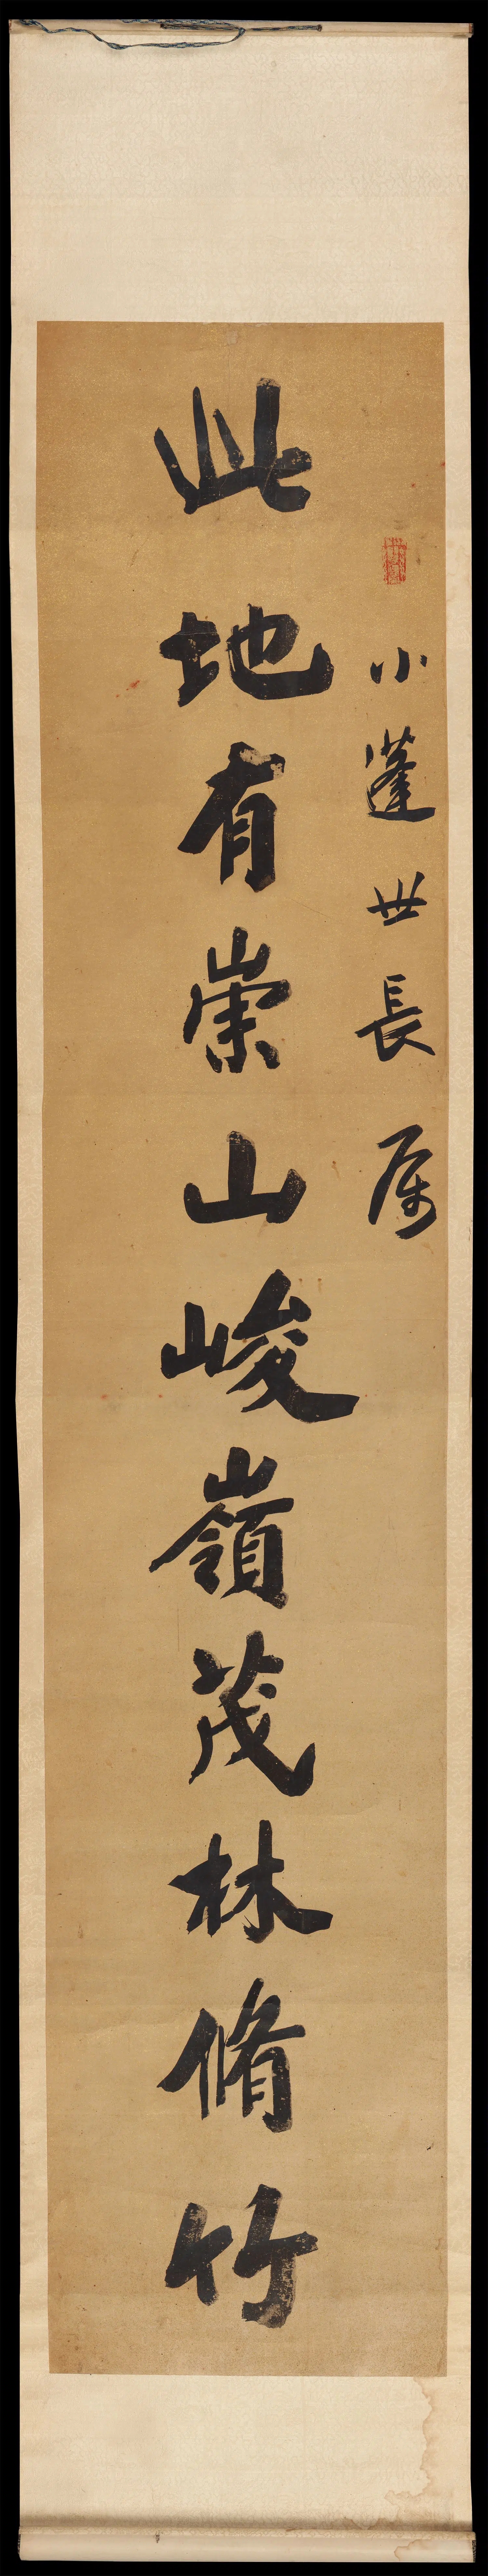 小蓬世長属
此地有崇山峻嶺茂林脩竹